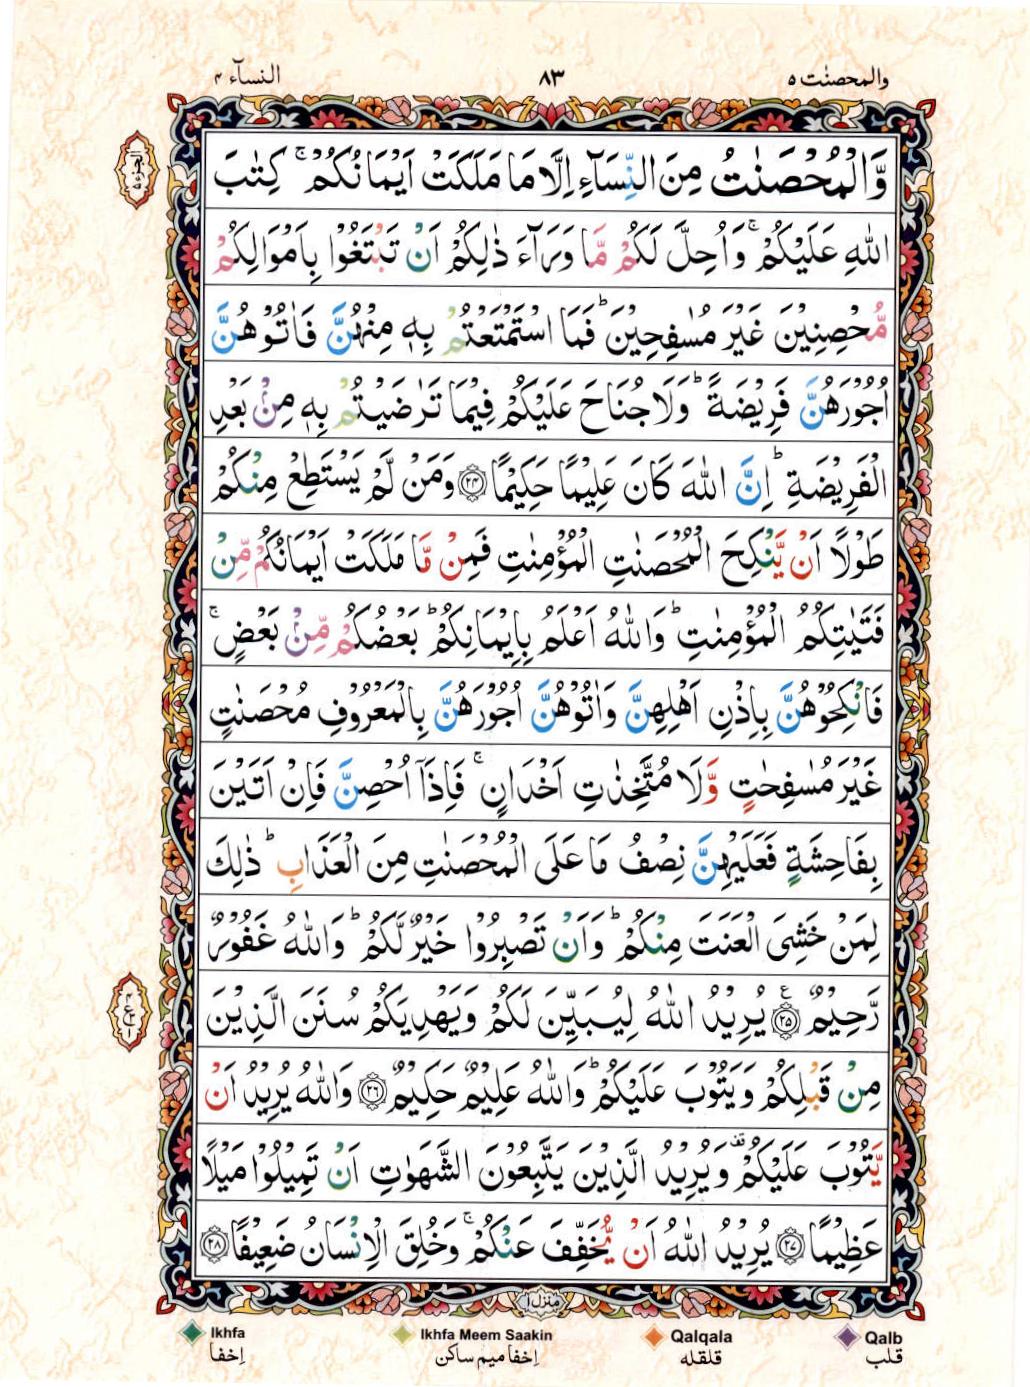 والمحصنٰت ۵
۸۳
النسآء ۴
الجزء ۵
وَّالْمُحْصَنٰتُ مِنَ النِّسَآءِ اِلَّا مَا مَلَكَتْ اَيْمَانُكُمْ ۚ كِتٰبَ
اللّٰهِ عَلَيْكُمْ ۚ وَاُحِلَّ لَكُمْ مَّا وَرَآءَ ذٰلِكُمْ اَنْ تَبْتَغُوْا بِاَمْوَالِكُمْ
مُّحْصِنِيْنَ غَيْرَ مُسٰفِحِيْنَ ؕ فَمَا اسْتَمْتَعْتُمْ بِهٖ مِنْهُنَّ فَاٰتُوْهُنَّ
اُجُوْرَهُنَّ فَرِيْضَةً ؕ وَلَا جُنَاحَ عَلَيْكُمْ فِيْمَا تَرٰضَيْتُمْ بِهٖ مِنْۢ بَعْدِ
الْفَرِيْضَةِ ؕ اِنَّ اللّٰهَ كَانَ عَلِيْمًا حَكِيْمًا ﴿۲۴﴾ وَمَنْ لَّمْ يَسْتَطِعْ مِنْكُمْ
طَوْلًا اَنْ يَّنْكِحَ الْمُحْصَنٰتِ الْمُؤْمِنٰتِ فَمِنْ مَّا مَلَكَتْ اَيْمَانُكُمْ مِّنْ
فَتَيٰتِكُمُ الْمُؤْمِنٰتِ ؕ وَاللّٰهُ اَعْلَمُ بِاِيْمَانِكُمْ ؕ بَعْضُكُمْ مِّنْۢ بَعْضٍ ۚ
فَانْكِحُوْهُنَّ بِاِذْنِ اَهْلِهِنَّ وَاٰتُوْهُنَّ اُجُوْرَهُنَّ بِالْمَعْرُوْفِ مُحْصَنٰتٍ
غَيْرَ مُسٰفِحٰتٍ وَّلَا مُتَّخِذٰتِ اَخْدَانٍ ۚ فَاِذَاۤ اُحْصِنَّ فَاِنْ اَتَيْنَ
بِفَاحِشَةٍ فَعَلَيْهِنَّ نِصْفُ مَا عَلَى الْمُحْصَنٰتِ مِنَ الْعَذَابِ ؕ ذٰلِكَ
لِمَنْ خَشِيَ الْعَنَتَ مِنْكُمْ ؕ وَاَنْ تَصْبِرُوْا خَيْرٌ لَّكُمْ ؕ وَاللّٰهُ غَفُوْرٌ
رَّحِيْمٌ ﴿۲۵﴾ يُرِيْدُ اللّٰهُ لِيُبَيِّنَ لَكُمْ وَيَهْدِيَكُمْ سُنَنَ الَّذِيْنَ
مِنْ قَبْلِكُمْ وَيَتُوْبَ عَلَيْكُمْ ؕ وَاللّٰهُ عَلِيْمٌ حَكِيْمٌ ﴿۲۶﴾ وَاللّٰهُ يُرِيْدُ اَنْ
يَّتُوْبَ عَلَيْكُمْ ۫ وَيُرِيْدُ الَّذِيْنَ يَتَّبِعُوْنَ الشَّهَوٰتِ اَنْ تَمِيْلُوْا مَيْلًا
عَظِيْمًا ﴿۲۷﴾ يُرِيْدُ اللّٰهُ اَنْ يُّخَفِّفَ عَنْكُمْ ۚ وَخُلِقَ الْاِنْسَانُ ضَعِيْفًا ﴿۲۸﴾
منزل ۱
Ikhfa
اِخفا
Ikhfa Meem Saakin
اِخفا میم ساکن
Qalqala
قلقله
Qalb
قلب